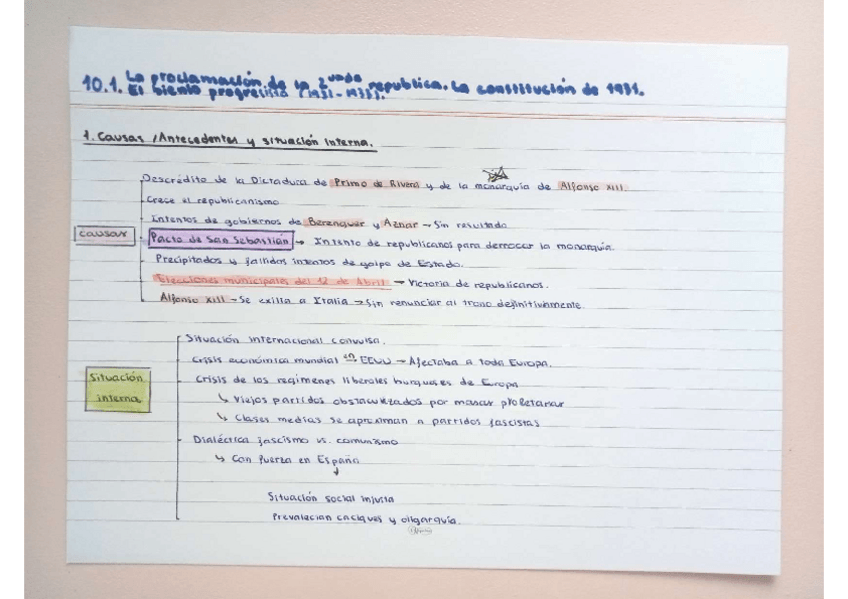 10.1. La proclamación de la 2ªunda republica. La constitución de 1931.
El bienio progresista (1931-1933).
1. Causas /Antecedentes y situación interna.
Descrédito de la Dictadura de Primo de Rivera y de la monarquía de Alfonso XIII.
Crece el republicanismo
Intentos de gobiernos de Berenguer y Aznar → Sin resultado
causas
Pacto de San Sebastián → Intento de republicanos para derrocar la monarquía.
Precipitados y fallidos intentos de golpe de Estado.
Elecciones municipales del 12 de Abril → Victoria de republicanos.
Alfonso XIII - Se exilia a Italia → Sin renunciar al trono definitivamente.
Situación internacional convulsa.
Crisis económica mundial en EEUU → Afectaba a toda Europa.
Situación interna
Crisis de los regímenes liberales burgueses de Europa
↳ Viejos partidos obstaculizados por masas proletarias
↳ Clases medias se aproximan a partidos fascistas
Dialéctica fascismo vs. comunismo
↳ Con fuerza en España
↓
Situación social injusta
Prevalecían caciques y oligarquía.